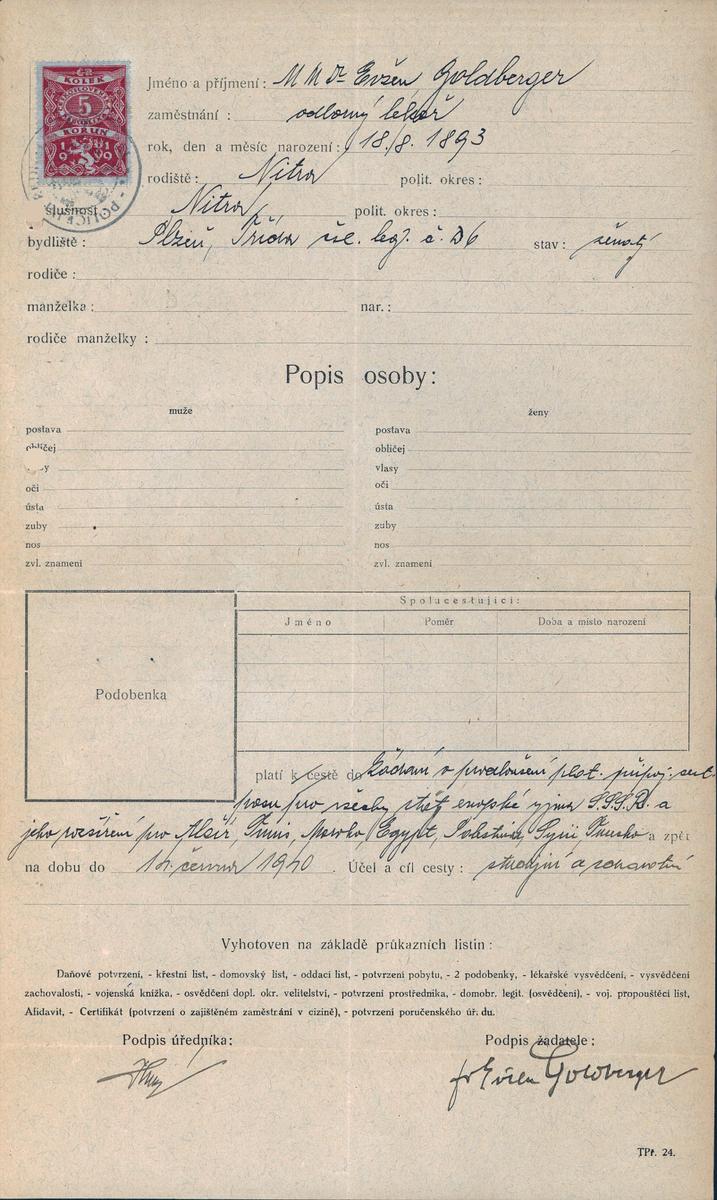 KOLEK
5
KORUN
Jméno a příjmení: MUDr Evžen Goldberger
zaměstnání: odborný lékař
rok, den a měsíc narození: 18./8. 1893
rodiště: Nitra polit. okres:
slušnost Nitra polit. okres:
bydliště: Plzeň, Třída čsl. leg. č. 26 stav: ženatý
rodiče:
manželka: nar.:
rodiče manželky:
Popis osoby:
muže ženy
postava postava
obličej obličej
vlasy
oči oči
ústa ústa
zuby zuby
nos nos
zvl. znamení zvl. znamení
Spolucestující:
Jméno Poměr Doba a místo narození
Podobenka
platí k cestě do žádaní o prodloužení plat. připoj. cest.
pasu pro všechy státy evropské vyjma S.S.S.R. a
jeho rozšíření pro Alžír, Tunis, Maroko, Egypt, Palestina, Syrii, Turecko a zpět
na dobu do 14. června 1940. Účel a cíl cesty: studijní a zdravotní
Vyhotoven na základě průkazních listin:
Daňové potvrzení, - křestní list, - domovský list, - oddací list, - potvrzení pobytu, - 2 podobenky, - lékařské vysvědčení, - vysvědčení
zachovalosti, - vojenská knížka, - osvědčení dopl. okr. velitelství, - potvrzení prostředníka, - domobr. legit. (osvědčení), - voj. propouštěcí list,
Afidavit, - Certifikát (potvrzení o zajištěném zaměstnání v cizině), - potvrzení poručenského úř. du.
Podpis úředníka: Podpis žadatele:
Dr Evžen Goldberger
TPř. 24.